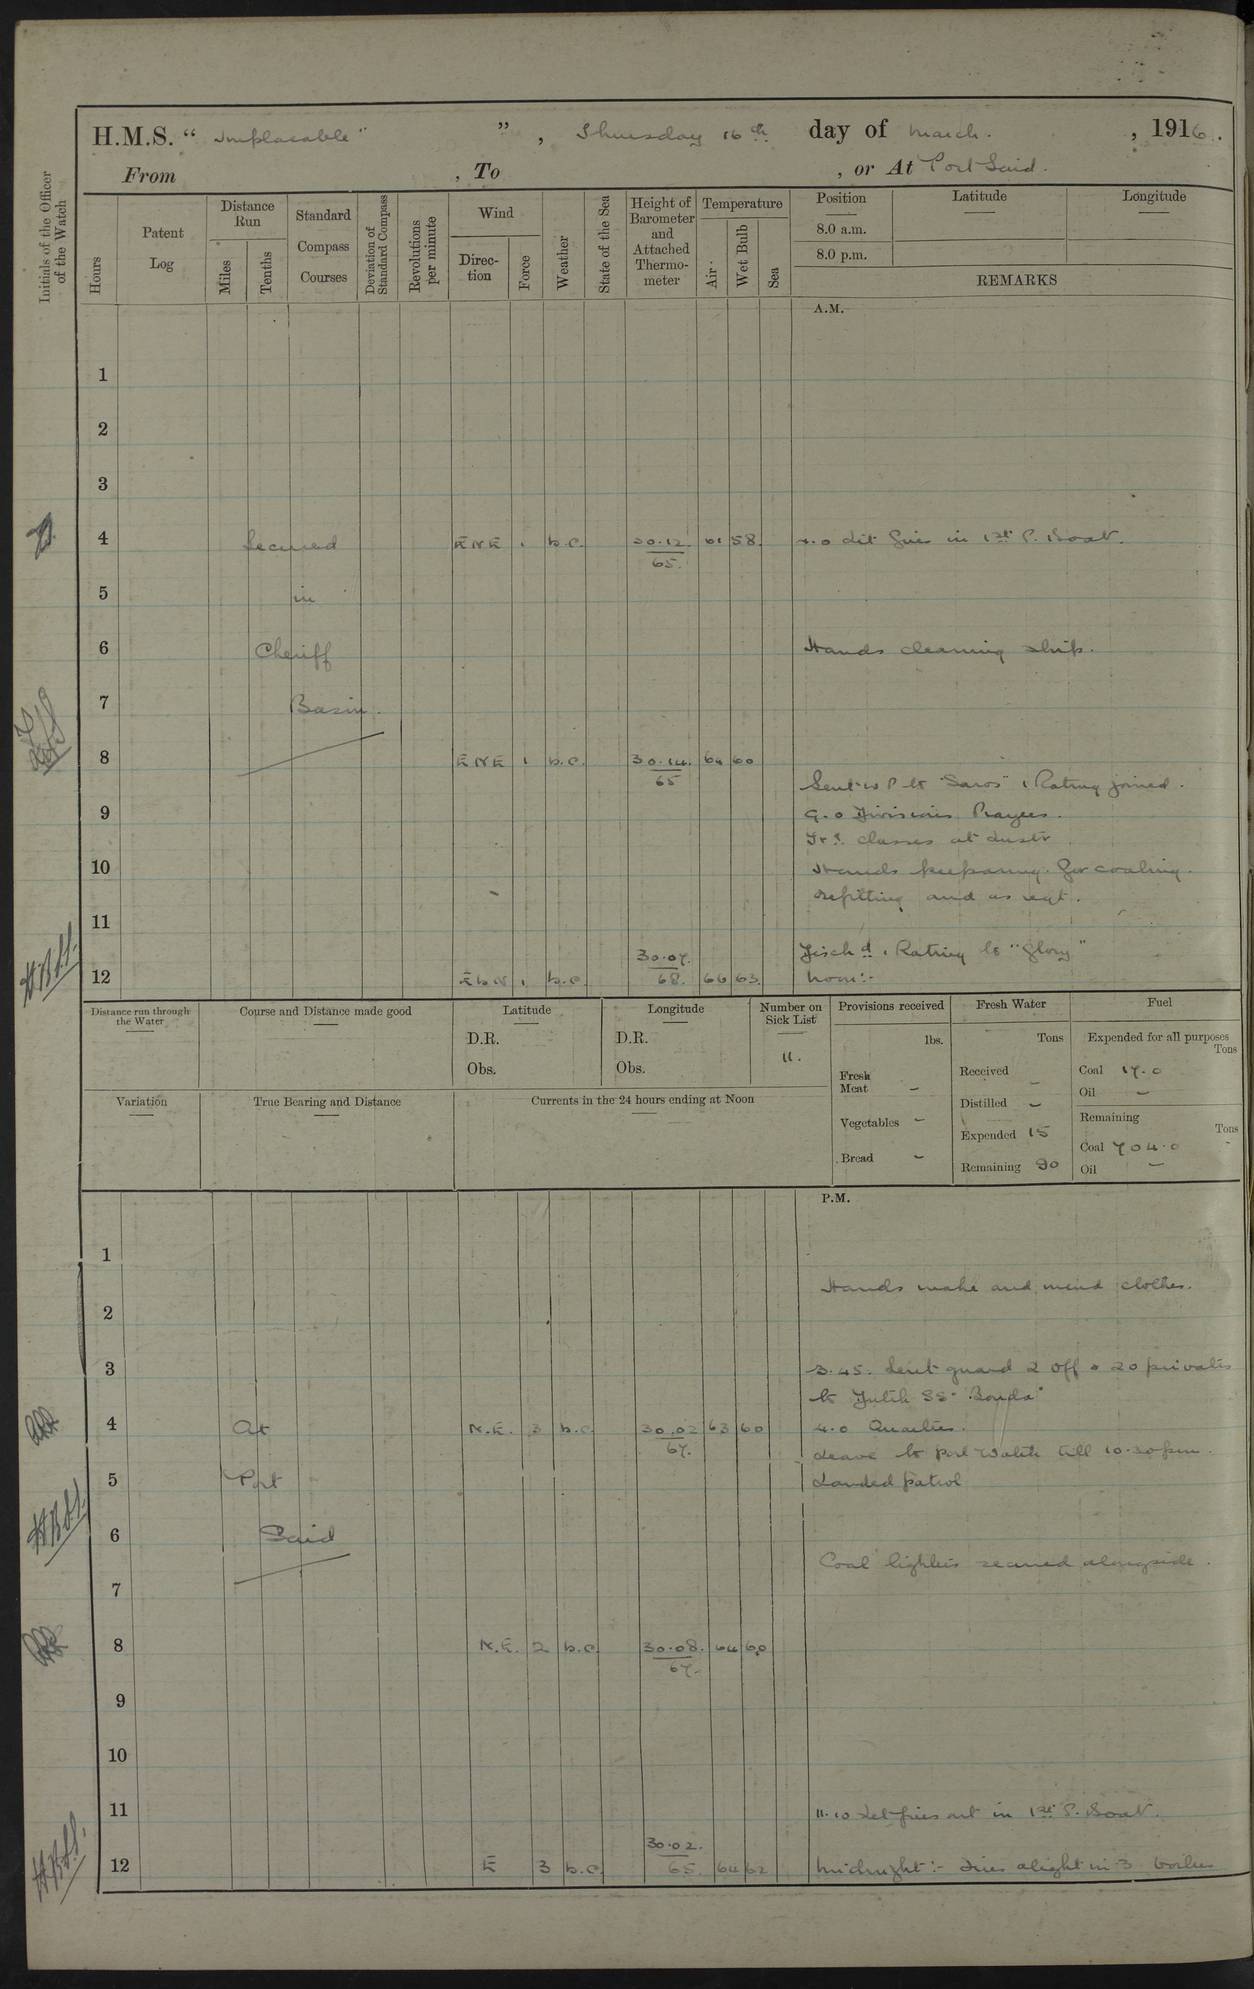 H.M.S. " Implacable " , Thursday 16th day of March. , 1916.
From , To , or At Port Said.
Initials of the Officer of the Watch
Hours
Patent Log
Distance Run
Miles
Tenths
Standard Compass Courses
Deviation of Standard Compass
Revolutions per minute
Wind
Direction
Force
Weather
State of the Sea
Height of Barometer and Attached Thermometer
Temperature
Air
Wet Bulb
Sea
Position
8.0 a.m.
8.0 p.m.
Latitude
Longitude
REMARKS
A.M.
1
2
3
4 Secured ENE 1 b.c. 30.12 65. 61 58. 4.0 Lit fires in 1st P. Boat.
5 in
6 Cheriff Hands cleaning ship.
7 Basin.
8 ENE 1 b.c. 30.14. 65 64 60
Sent W P to "Saros" 1 Rating joined.
9 9.0 Divisions Prayers.
classes at Instr
10 Hands preparing for coaling.
refitting and as reqt.
11
Disch d 1 Rating to "Glory"
12 E b N 1 b.c. 30.07. 68. 66 63. Noon:-
H.B.H.
Distance run through the Water
Course and Distance made good
Latitude
D.R.
Obs.
Longitude
D.R.
Obs.
Number on Sick List
11.
Provisions received
lbs.
Fresh Meat -
Vegetables -
Bread -
Fresh Water
Tons
Received -
Distilled -
Expended 15
Remaining 90
Fuel
Expended for all purposes
Tons
Coal 17.0
Oil -
Remaining
Tons
Coal 704.0
Oil -
Variation
True Bearing and Distance
Currents in the 24 hours ending at Noon
P.M.
1
Hands make and mend clothes.
2
3 3.45. Sent guard 2 Off & 20 privates
to "Bouda"
4 At N.E. 3 b.c. 30.02 67. 63 60 4.0 Quarters.
Leave to Port Watch till 10.30 pm.
5 Port Landed patrol
H.B.H.
6 Said
Coal lighters secured alongside.
7
8 N.E. 2 b.c. 30.08. 67. 64 60
9
10
11 11.10 Let fires out in 1st P. Boat.
12 E 3 b.c. 30.02. 65. 64 62 Midnight:- Fires alight in 3 boilers
H.B.H.